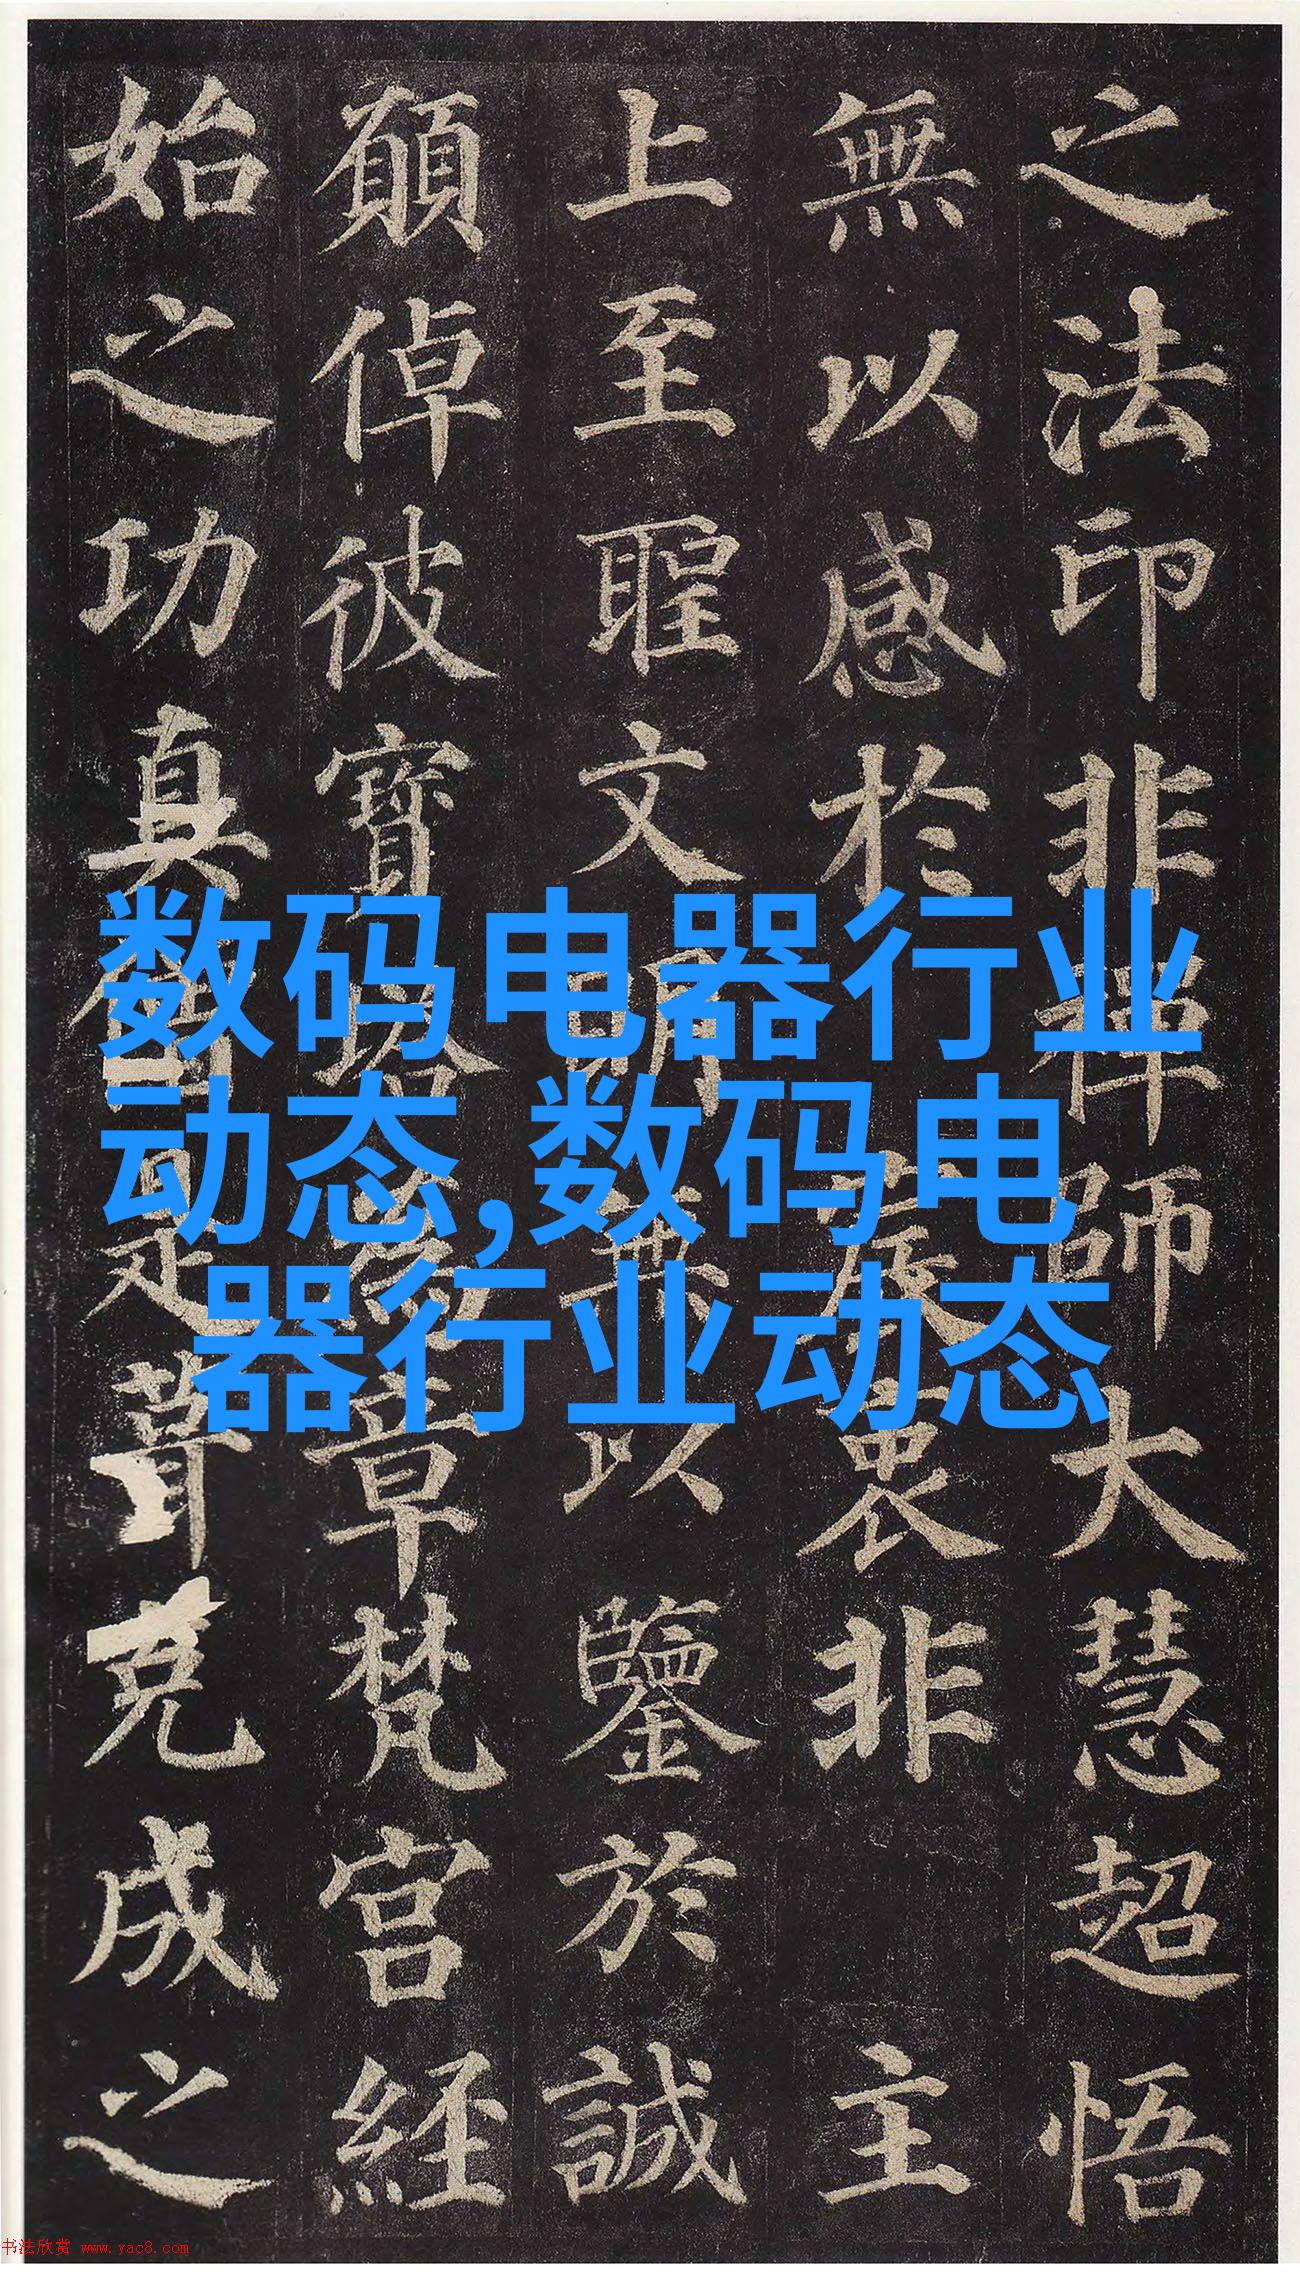 之法印非禪師大慧超悟
無以感於宸衷非主
上至聖文明無以鑒於誠
願倬彼寶塔為章梵宮經
始之功真僧是葺克成之
数码电器行业
动态,数码电
器行业动态
书法欣赏 www.yac8.com